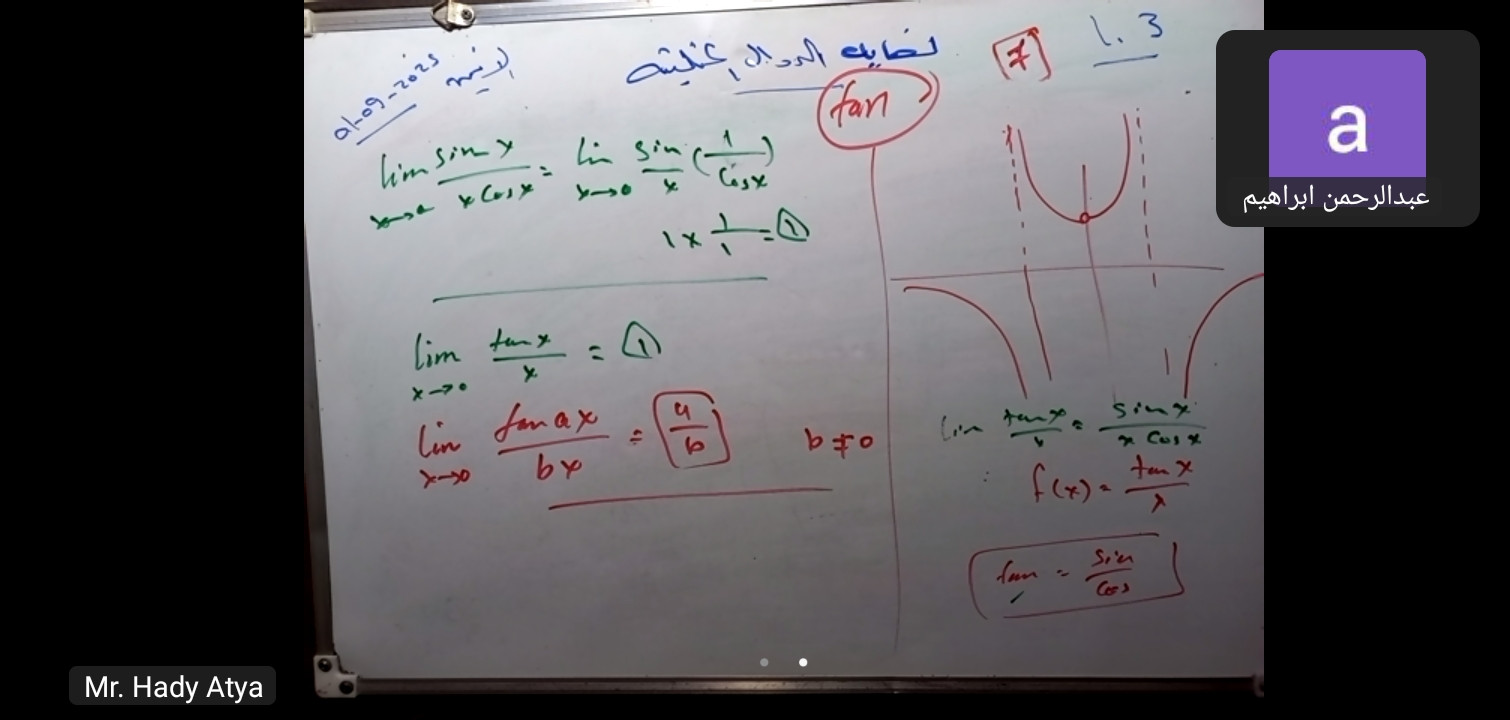 1.3
[7]
الدوال
الاثنين
01-09-2025
tan
lim x→0 sin x / x cos x = lim x→0 sin / x (1 / cos x)
1 × 1/1 = 1
lim x→0 tan x / x = 1
lim x→0 tan ax / bx = a/b b ≠ 0
lim tan x / x = sin x / x cos x
f(x) = tan x / x
tan = sin / cos
a
عبدالرحمن ابراهيم
Mr. Hady Atya